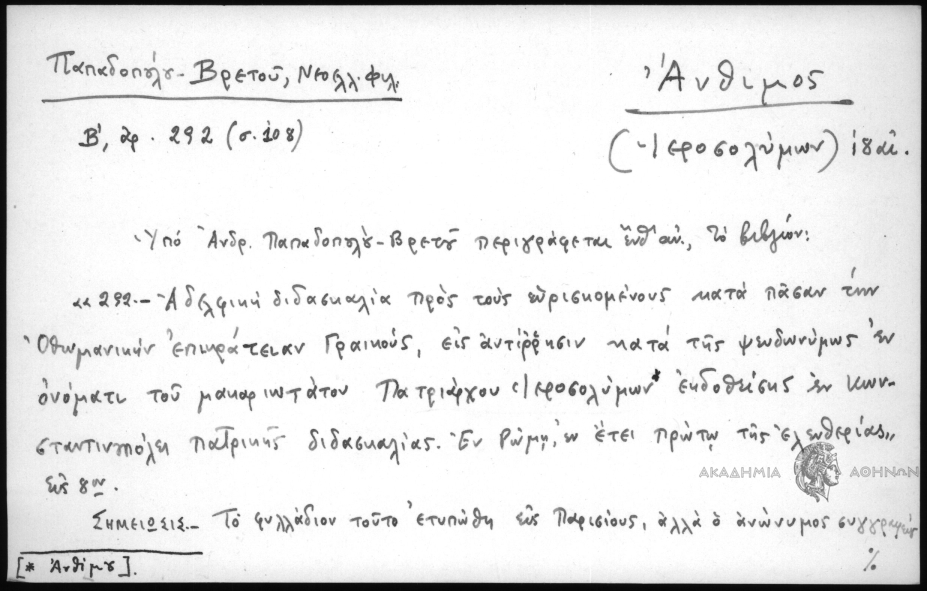 Παπαδοπούλου-Βρετοῦ, Νεοελλ. φιλ.
Ἄνθιμος
Β', ἀρ. 292 (σ. 108)
(Ἱεροσολύμων) ιθ' αἰ.
Ὑπό Ἀνδρ. Παπαδοπούλου-Βρετοῦ περιγράφεται ἔνθ' ἀν., τό βιβλίον:
«292.- Ἀδελφική διδασκαλία πρός τούς εὑρισκομένους κατά πᾶσαν τήν
Ὀθωμανικήν ἐπικράτειαν Γραικούς, εἰς ἀντίῤῥησιν κατά τῆς ψευδωνύμως ἐν
ὀνόματι τοῦ μακαριωτάτου Πατριάρχου Ἱεροσολύμων* ἐκδοθείσης ἐν Κων-
σταντινουπόλει πατρικῆς διδασκαλίας. Ἐν Ῥώμῃ, ἐν ἔτει πρώτῳ τῆς Ἐλευθερίας„
εἰς 8ον.
ΑΚΑΔΗΜΙΑ ΑΘΗΝΩΝ
Σημείωσις.- Τό φυλλάδιον τοῦτο ἐτυπώθη εἰς Παρισίους, ἀλλά ὁ ἀνώνυμος συγγραφεύς
[* Ἀνθίμου].
%